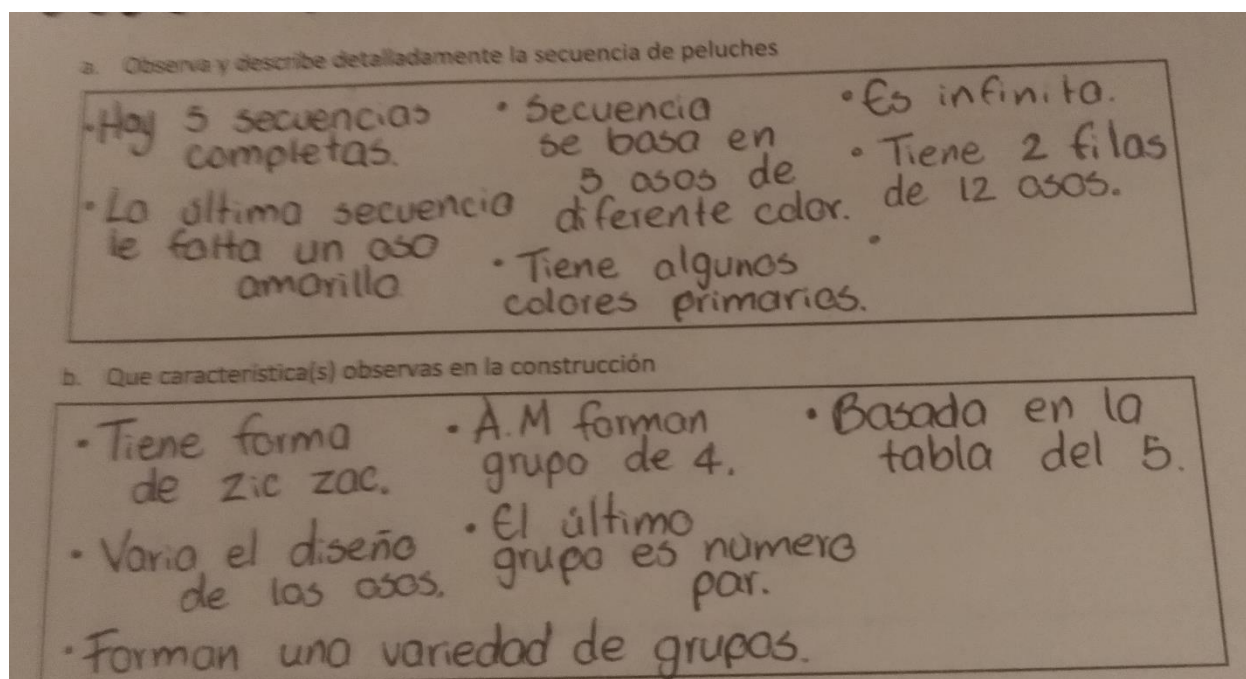 a. Observa y describe detalladamente la secuencia de peluches
• Hay 5 secuencias
completas.
• La última secuencia
le falta un oso
amarillo
• Secuencia
se basa en
5 osos de
diferente color.
• Tiene algunos
colores primarios.
• Es infinita.
• Tiene 2 filas
de 12 osos.
•
b. Que característica(s) observas en la construcción
• Tiene forma
de zic zac.
• Varia el diseño
de los osos.
• Forman una variedad de grupos.
• A.M forman
grupo de 4.
• El último
grupo es número
par.
• Basada en la
tabla del 5.